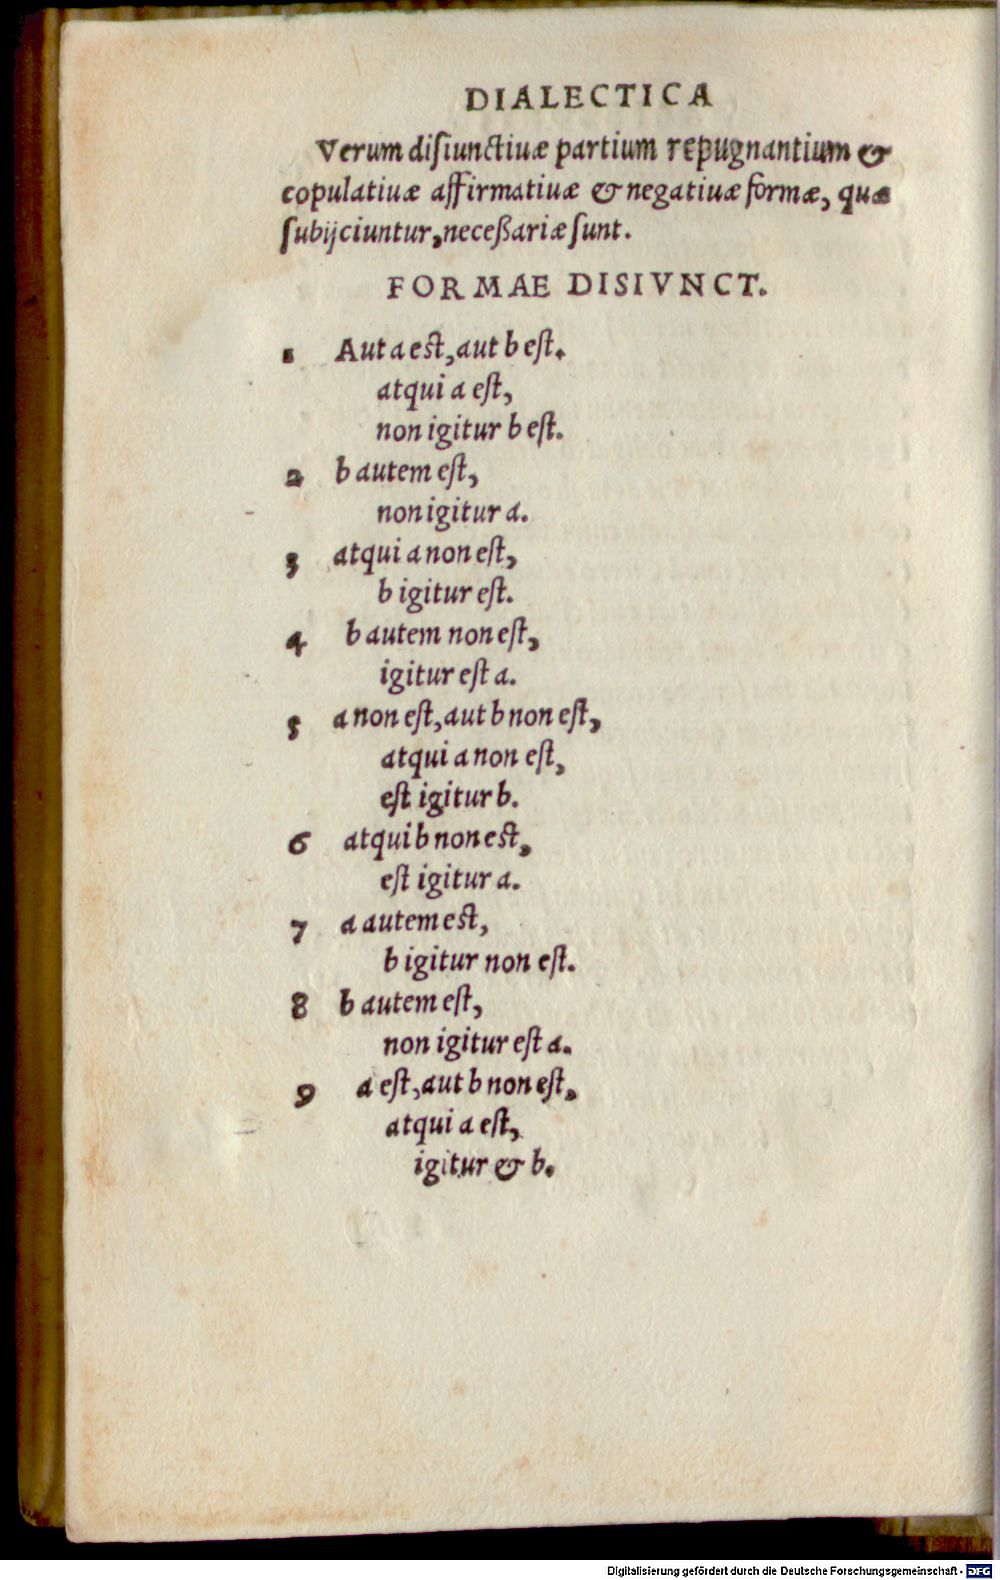 DIALECTICA
Verum disiunctiuæ partium repugnantium &
copulatiuæ affirmatiuæ & negatiuæ formæ, quæ
subijciuntur, necessariæ sunt.
FORMAE DISIVNCT.
1 Aut a est, aut b est.
atqui a est,
non igitur b est.
2 b autem est,
non igitur a.
3 atqui a non est,
b igitur est.
4 b autem non est,
igitur est a.
5 a non est, aut b non est,
atqui a non est,
est igitur b.
6 atqui b non est,
est igitur a.
7 a autem est,
b igitur non est.
8 b autem est,
non igitur est a.
9 a est, aut b non est,
atqui a est,
igitur & b.
Digitalisierung gefördert durch die Deutsche Forschungsgemeinschaft - DFG